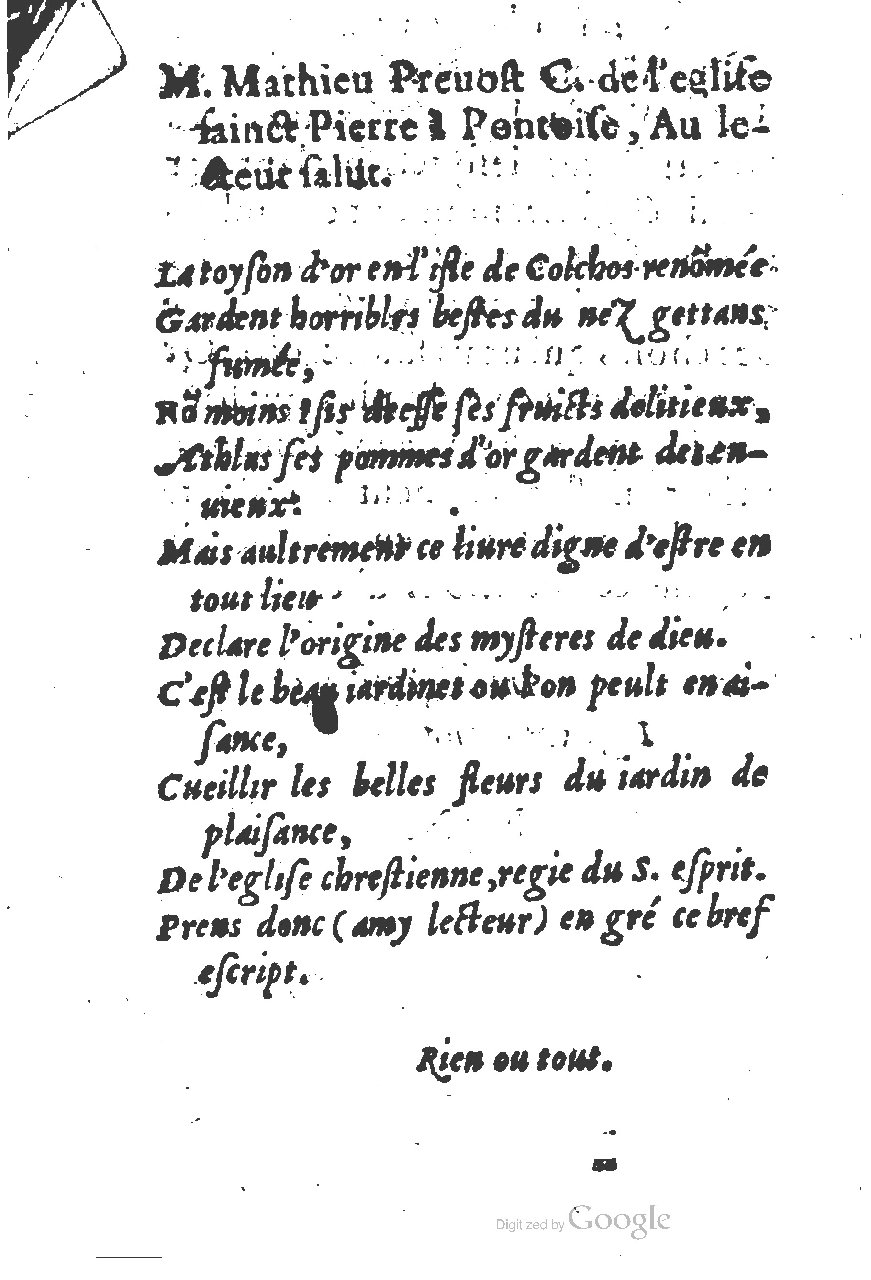 M. Mathieu Preuoſt C. de l'egliſe
ſainct Pierre à Pontoiſe, Au le-
cteur ſalut.
La toyſon d'or en l'iſle de Colchos renõmée
Gardent horribles beſtes du neZ gettans
fumée,
Nõ moins Iſis dreſſe ſes fruicts delitieux,
Athlas ſes pommes d'or gardent des en-
uieux:
Mais aultrement ce liure digne d'eſtre en
tout lieu
Declare l'origine des myſteres de dieu.
C'eſt le beau iardinet ou l'on peult en ai-
ſance,
Cueillir les belles fleurs du iardin de
plaiſance,
De l'egliſe chreſtienne, regie du S. eſprit.
Prens donc (amy lecteur) en gré ce bref
eſcript.
Rien ou tout.
Digitized by Google